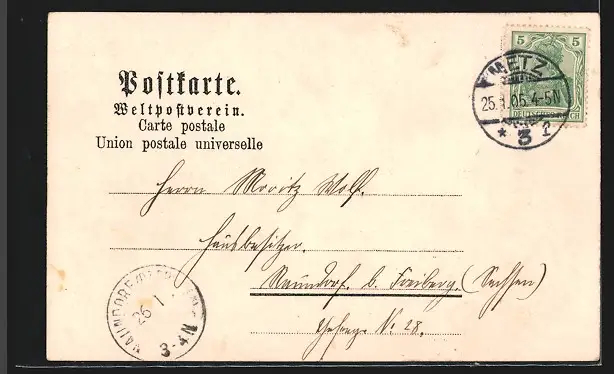 Postkarte.
Weltpostverein.
Carte postale
Union postale universelle
5 5
DEUTSCHES REICH
METZ
25.1.05 4-5N
* 3
Herrn Moritz Wolf.
Hausbesitzer.
Naundorf b. Freiberg. (Sachsen)
No. 28.
NAUNDORF
26 1
3-4N